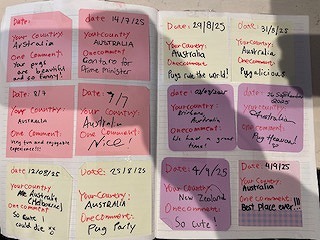 date:
Your country
Australia
One comment:
Your pugs
are beautiful
and so funny!
date: 14/7/25
Your country
AUSTRALIA
One comment
Gantaro for
Prime Minister
Date: 8/7
Your Country:
Australia
One Comment:
Very fun and enjoyable
experience!!!
Date: 7/7
Your Country:
Australia
One Comment!
Nice!
Date: 12/08/25
Your country
Australia
(Melbourne)
One comment:
So cute I
could die
Date: 25/8/25
Your Country:
AUSTRALIA
One comment:
Pug Party
Date: 29/8/25
Your Country:
Australia
One Comment:
Pugs rule the world!
Date: 31/8/25
Your Country:
Australia
One comment:
Pugalicious
Date: 02/09/2025
Your Country:
Brisbane,
Australia
One comment:
We had a great
time!
Date:
September
2025
Your Country:
Australia
One comment:
Pug Heaven!
Date: 4/9/25
Your Country
New Zealand
One Comment
So cute!
Date: 4/9/25
Your Country
Australia
One comment:
Best place ever!!!